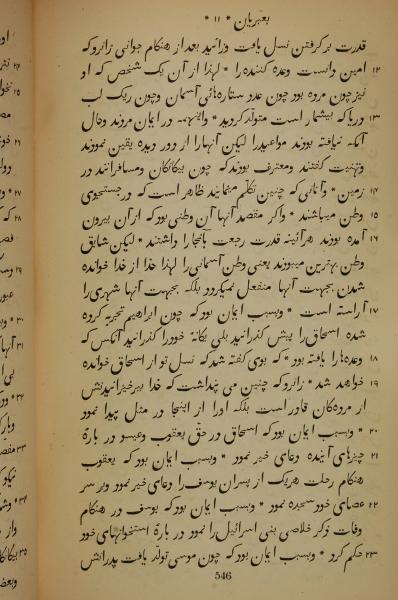 بعبریان * ۱۱ *
قدرت بر گرفتن نسل یافت وزائید بعد از هنگام جوانی زانرو که
۱۲ امین دانست وعده کننده را * لهذا از آن یک شخص که او
نیز چون مرده بود چون عدد ستاره‌های آسمان وچون ریک لب
۱۳ دریا که بیشمار است متولد کردید * واینهمه در ایمان مردند وحال
آنکه نیافته بودند مواعید را لیکن آنها را از دور دیده یقین نمودند
وتهنیت گفتند ومعترف بودند که چون بیکانکان ومسافرانند در
۱۴ زمین * وآنانی که چنین تکلم مینمایند ظاهر است که در جستجوی
۱۵ وطن میباشند * واکر مقصد آنها آن وطنی بود که از آن بیرون
۱۶ آمده بودند هرآئینه قدرت رجعت بآنجا را داشتند * لیکن شایق
وطن بهترین میبودند یعنی وطن آسمانی را لهذا خدا از خدا خوانده
شدن بجهت آنها منفعل نمیکردد بلکه بجهت آنها شهری را
۱۷ آراسته است * وبسبب ایمان بود که چون ابراهیم تجربه کرده
شده اسحاق را پیش کذرانید بلی یکانه خود را کذرانید آنکس که
۱۸ وعده‌ها را یافته بود * که بوی کفته شد که نسل تو از اسحاق خوانده
۱۹ خواهد شد * زانرو که چنین می پنداشت که خدا بر خیزانیدنش
از مرده‌کان قادر است بلکه او را از اینجا در مثل پیدا نمود
۲۰ * وبسبب ایمان بود که اسحاق در حق یعقوب وعیسو در بارۀ
۲۱ چیزهای آینده دعای خیر نمود * وبسبب ایمان بود که یعقوب
هنکام رحلت هر یک از پسران یوسف را دعای خیر نمود وبر سر
۲۲ عصای خود سجده نمود * وبسبب ایمان بود که یوسف در هنکام
وفات ذکر خلاصی بنی اسرائیل را نمود در بارۀ استخوانهای خود
۲۳ حکم کرد * وبسبب ایمان بود که چون موسی تولد یافت پدرانش
546